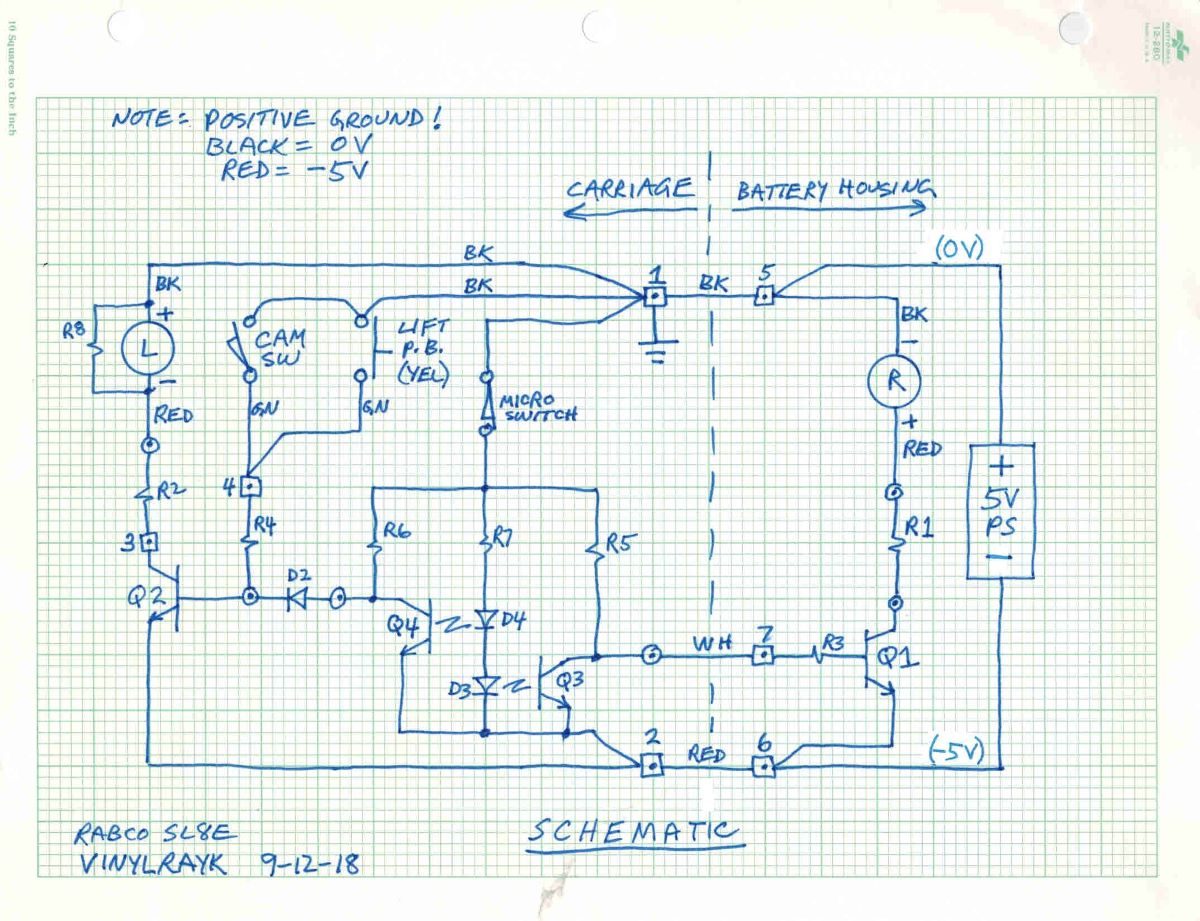 16 Squares to the Inch
12-280
NOTE: POSITIVE GROUND!
BLACK = 0V
RED = -5V
CARRIAGE
BATTERY HOUSING
(0V)
BK
BK
BK
1
BK
5
BK
R8
+
L
-
CAM
SW
LIFT
P.B.
(YEL)
-
R
+
RED
GN
GN
MICRO
SWITCH
RED
R2
4
R4
R6
R7
R5
R1
+
5V
PS
-
3
Q2
D2
Q4
D4
WH
7
R3
Q1
D3
Q3
2
RED
6
(-5V)
RABCO SL8E
VINYLRAYK 9-12-18
SCHEMATIC